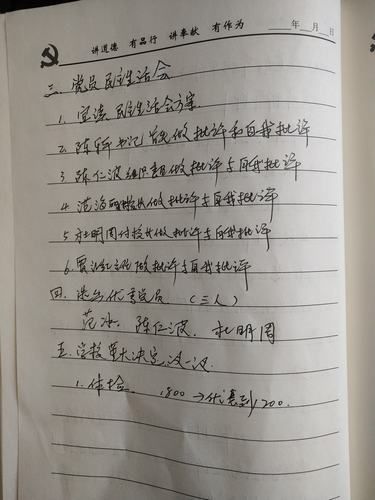 讲道德 有品行 讲奉献 有作为 年 月 日
三. 党员民主生活会
1. 宣读民主生活会方案.
2. 陈 书记首先做批评和自我批评
3. 陈仁波组织委员做批评与自我批评
4. 范海 做批评与自我批评
5. 杜明周付校长做批评与自我批评
6. 贾 主任做批评与自我批评
四. 选出优秀党员 (三人)
范冰. 陈仁波. 杜明周
五. 学校重大决定议一议
1. 体检 1800 → 优惠到 1200.